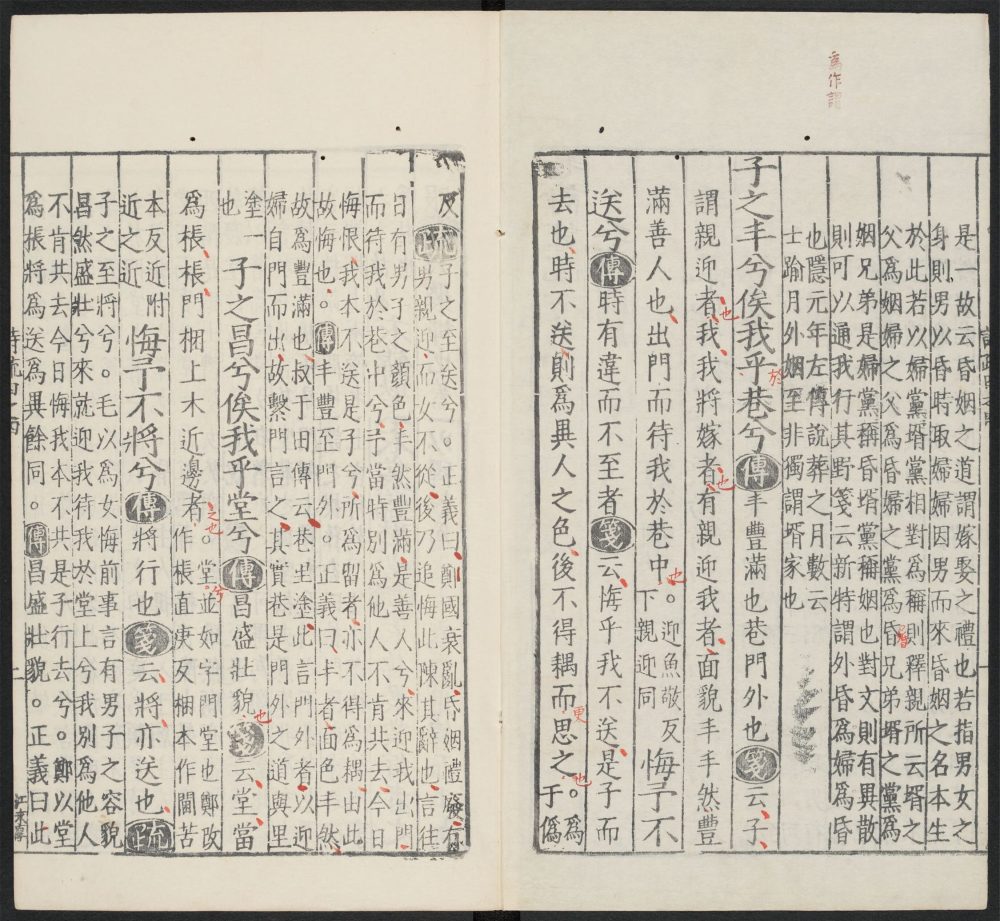 爲作謂
是一故云昏姻之道謂嫁娶之禮也若指男女之
身則男以昏時取婦婦因男而來昏姻之名本生
於此若以婦黨壻黨相對爲稱則釋親所云壻之
父爲姻婦之父爲昏婦之黨爲昏兄弟壻之黨爲
姻兄弟是婦黨稱昏壻黨稱姻也對文則有異散
則可以通我行其野箋云新特謂外昏爲婦爲昏
也隱元年左傳說葬之月數云
士踰月外姻至非獨謂壻家也
子之丰兮俟我乎巷兮傳丰豐滿也巷門外也箋云子
謂親迎者我我將嫁者有親迎我者面貌丰丰然豐
滿善人也出門而待我於巷中。迎魚敬反
下親迎同
悔予不
送兮傳時有違而不至者箋云悔乎我不送是子而
去也時不送則爲異人之色後不得耦而思之。爲
于僞
反疏子之至送兮。正義曰鄭國衰亂昏姻禮廢有
男親迎而女不從後乃追悔此陳其辭也言往
日有男子之顏色丰然豐滿是善人兮來迎我出門
而待我於巷中兮予當時別爲他人不肯共去今日
悔恨我本不送是子兮所爲留者亦不得爲耦由此
故悔也。傳丰豐至門外。正義曰丰者面色丰然
故爲豐滿也叔于田傳云巷里塗此言門外者以迎
婦自門而出故繫門言之其實巷是門外之道與里
塗一
也
子之昌兮俟我乎堂兮傳昌盛壯貌箋云堂當
爲棖棖門梱上木近邊者。堂並如字門堂也鄭改
作棖直庚反梱本作閫苦
本反近附
近之近
悔予不將兮傳將行也箋云將亦送也疏
子之至將兮。毛以爲女悔前事言有男子之容貌
昌然盛壯兮來就迎我待我於堂上兮我別爲他人
不肯共去今日悔我本不共是子行去兮。鄭以堂
爲棖將爲送爲異餘同。傳昌盛壯貌。正義曰此